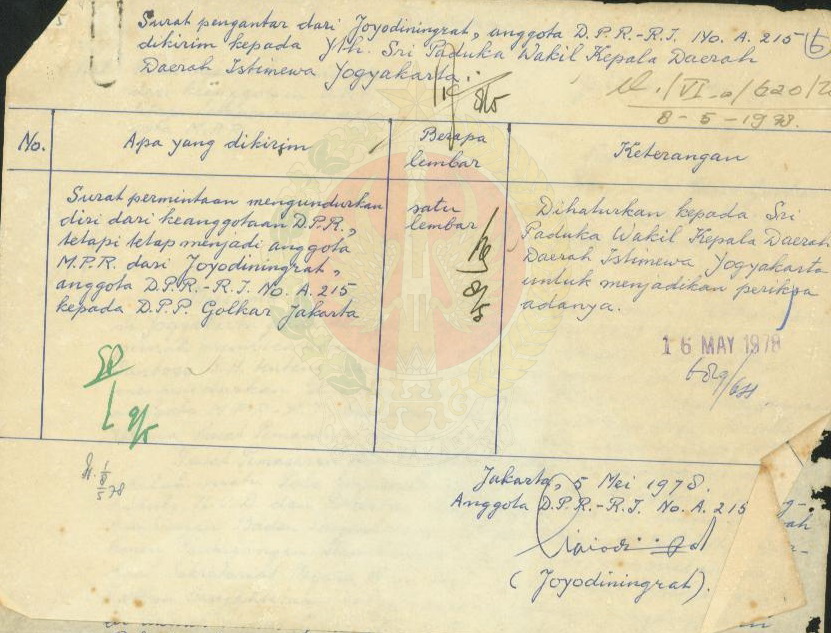 Surat pengantar dari Joyodiningrat, anggota D.P.R.-R.I. No. A. 215
dikirim kepada Yth. Sri Paduka Wakil Kepala Daerah
Daerah Istimewa Yogyakarta.
6
/VI-a/620/
8-5-1978.
No.
Apa yang dikirim
Berapa
lembar
Keterangan
Surat permintaan mengundurkan
diri dari keanggotaan D.P.R.,
tetapi tetap menjadi anggota
M.P.R. dari Joyodiningrat,
anggota D.P.R.-R.I. No. A. 215
kepada D.P.P. Golkar Jakarta
satu
lembar
Dihaturkan kepada Sri
Paduka Wakil Kepala Daerah
Daerah Istimewa Yogyakarta
untuk menjadikan periksa
adanya.
16 MAY 1978
Jakarta, 5 Mei 1978.
Anggota D.P.R.-R.I. No. A. 215
(Joyodiningrat).